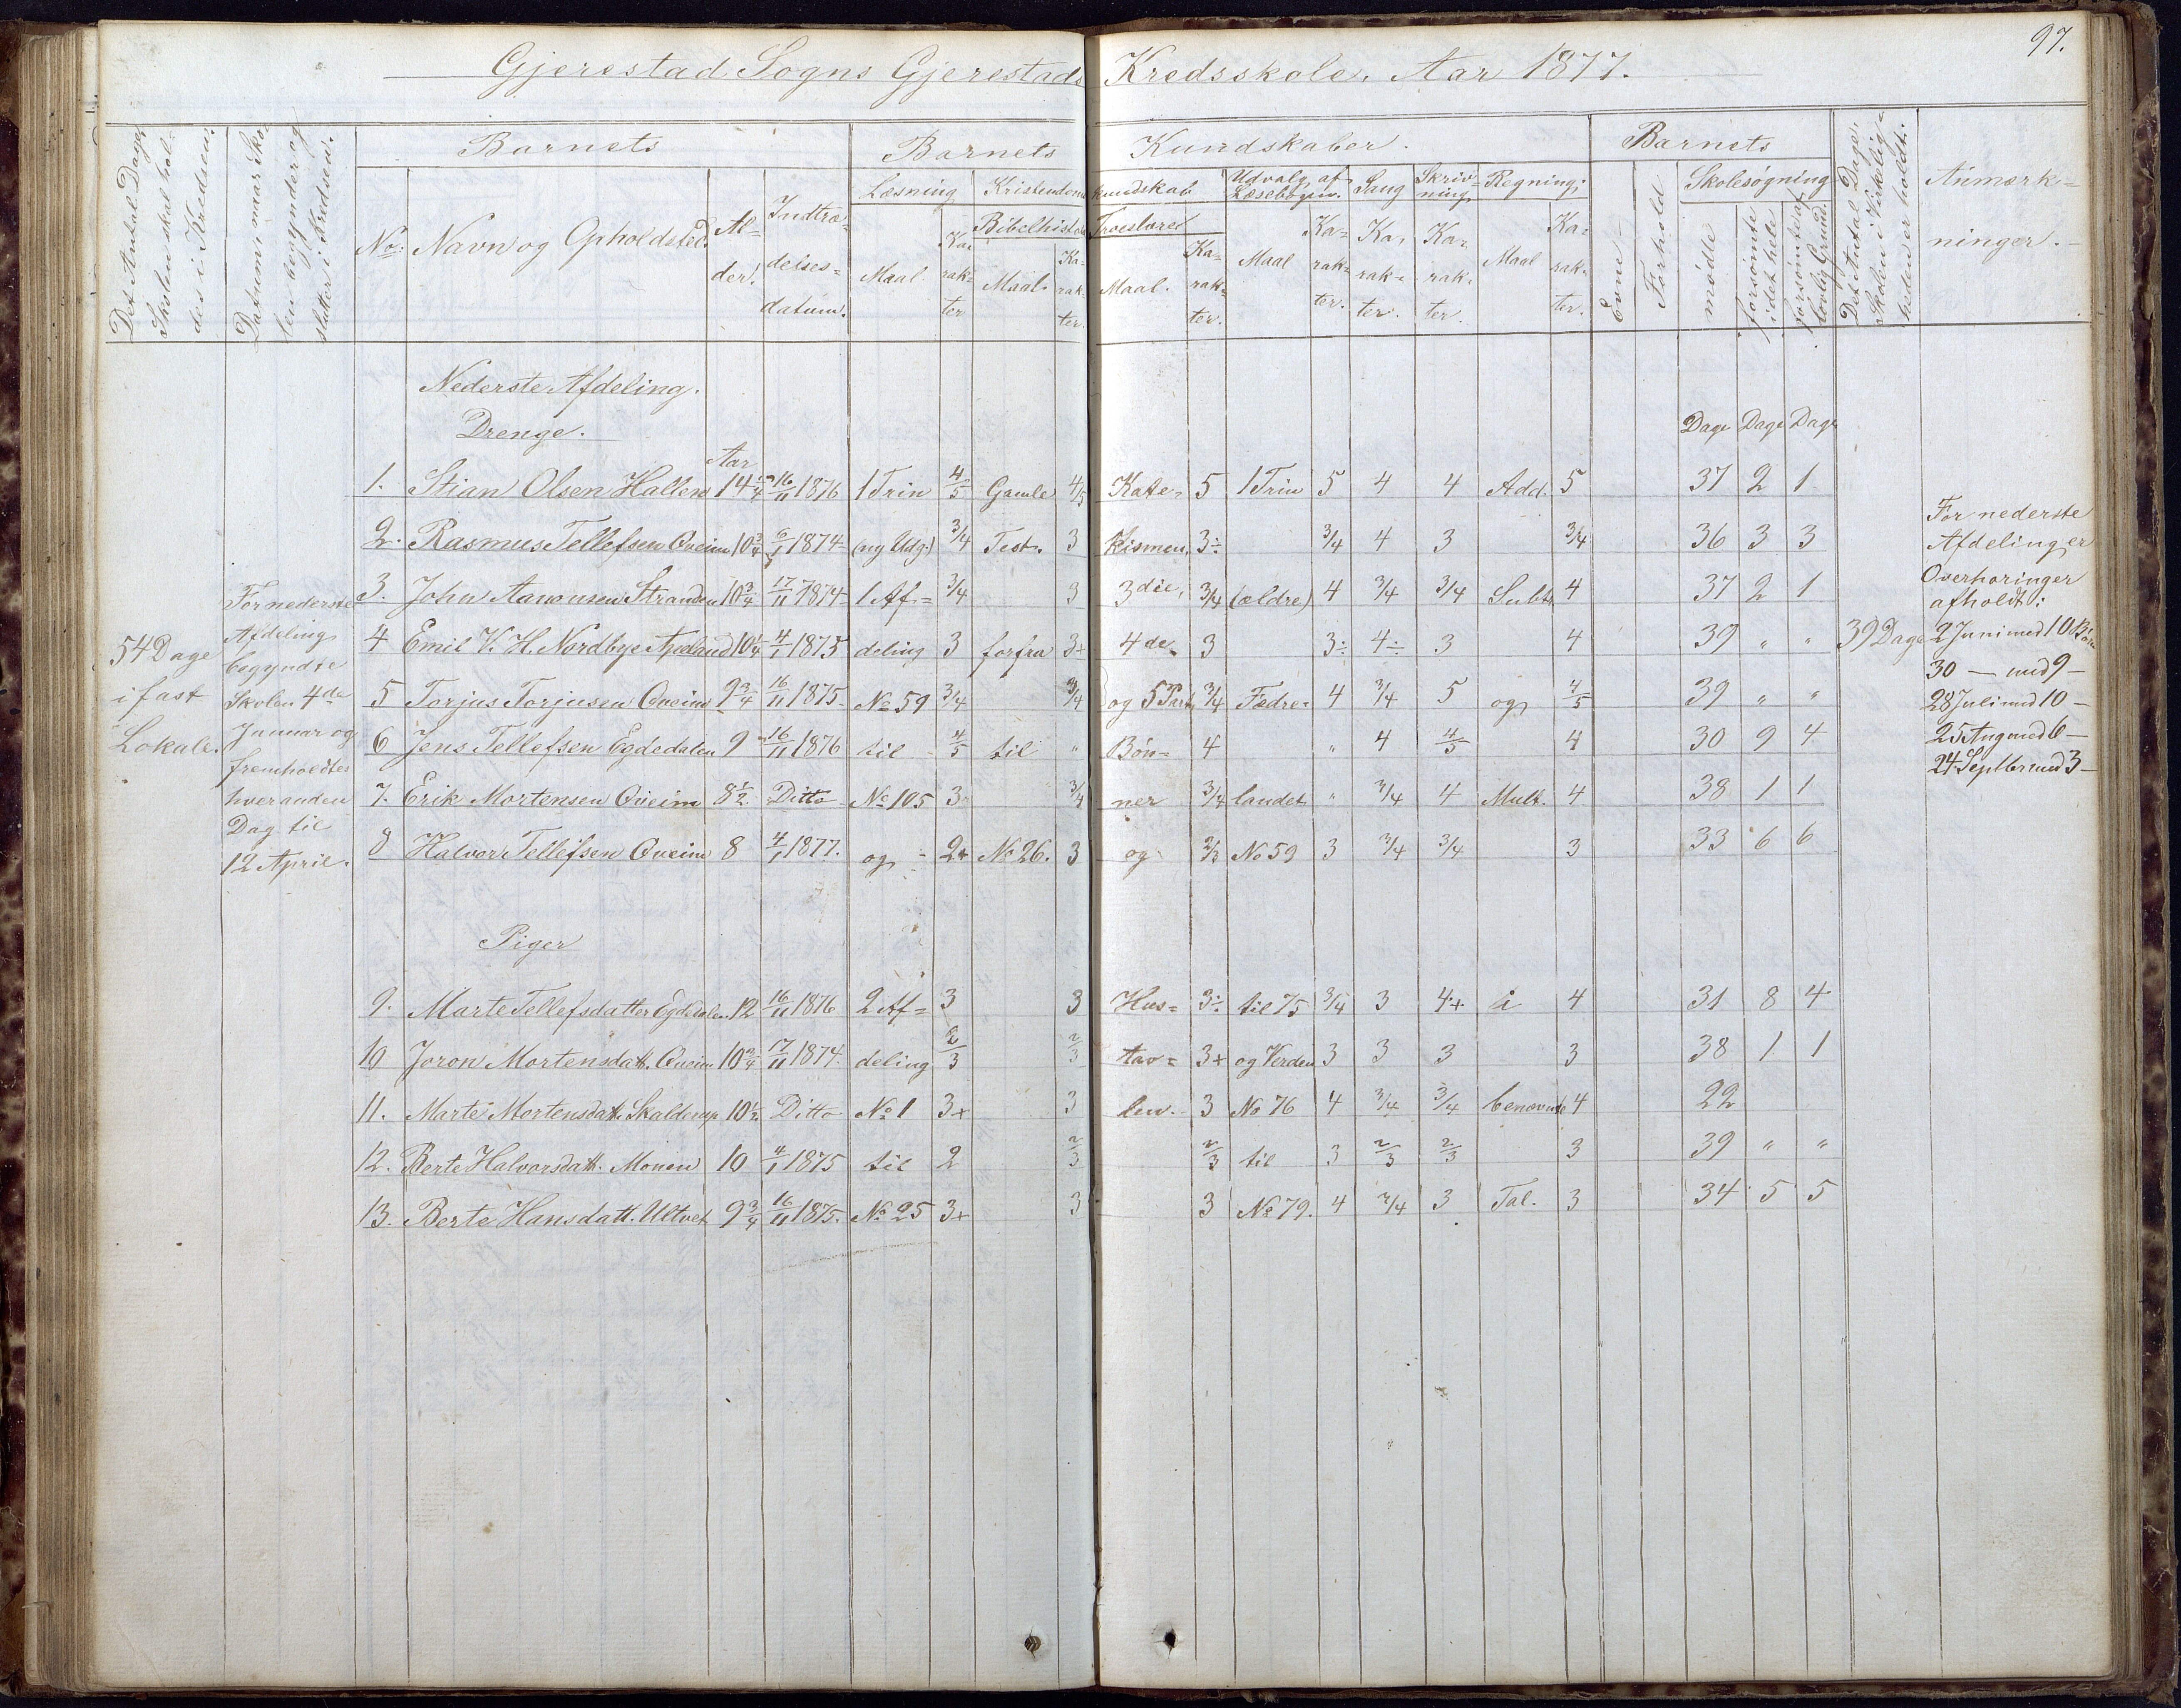 97.
Gjerestad Sogns Gjerestads Kredsskole, Aar 1877.
Det Antal Dage, Skolen skal holdes i Kredsen.
Datum, naar Skolen begynder og slutter i Kredsen.
Barnets
Barnets Kundskaber.
Barnets
Det Antal Dage, Skolen i Virkeligheden er holdt.
Anmærkninger.
No. Navn og Opholdsted. Alder. Indtrædelsesdatum.
Læsning Kristendomskundskab Udvalg af Læsebogen. Sang Skrivning Regning.
Bibelhistorie Troeslære
Maal Karakter Maal. Karakter. Maal. Karakter. Maal Karakter. Karakter. Karakter. Maal Karakter.
Evne Forhold
Skolesøgning
mødte forsømte i det hele forsømte af lovlig Grund.
Nederste Afdeling.
Drenge.
Aar
Dage Dage Dage
1. Stian Olsen Hallen 14 1/4 16/11 1876 1 Trin 4/5 Gamle 4/5 Kate- 5 1 Trin 5 4 4 Add. 5 37 2 1
2. Rasmus Tellefsen Qveim 10 3/4 6/1 1874 (ny Udg.) 3/4 Test. 3 kismen, 3÷ 3/4 4 3 3/4 36 3 3
3. John Aanonsen Stranden 10 3/4 17/11 1874 1 Af= 3/4 3 3die, 3/4 (ældre) 4 3/4 3/4 Subt. 4 37 2 1
4 Emil V. H. Nordbye Apeland 10 1/4 4/1 1875 deling 3 forfra 3+ 4de 3 3÷ 4÷ 3 4 39 " "
5 Torjus Torjusen Qveim 9 3/4 16/11 1875 No 59 3/4 3/4 og 5 Part 3/4 Fædre= 4 3/4 5 og 4/5 39 " "
6 Jens Tellefsen Egdedalen 9 16/11 1876 til 4/5 til " Bøn= 4 " 4 4/5 4 30 9 4
7. Erik Mortensen Qveim 8 1/2 Ditto No 105 3 3/4 ner 3/4 landet " 3/4 4 Mult. 4 38 1 1
8 Halvor Tellefsen Qveim 8 4/1 1877. og 2+ No 26. 3 og 2/3 No 59 3 3/4 3/4 3 33 6 6
Piger
9. Marte Tellefsdatter Egdedalen 12 16/11 1876 2 Af= 3 3 Hus= 3÷ til 75 3/4 3 4+ i 4 31 8 4
10 Joron Mortensdatt. Qveim 10 3/4 17/11 1874. deling 2/3 2/3 tav= 3+ og Verden 3 3 3 3 38 1 1
11. Marte Mortensdatt. Skalderup 10 1/2 Ditto No 1 3+ 3 len. 3 No 76 4 3/4 3/4 benævnte 4 22
12. Berte Halvorsdatt. Monen 10 4/1 1875 til 2 2/3 2/3 til 3 2/3 2/3 3 39 " "
13. Berte Hansdatt. Ultvet 9 3/4 16/11 1875. No 25 3+ 3 3 No 79. 4 3/4 3 Tal. 3 34 5 5
54 Dage
i fast
Lokale.
For nederste
Afdeling
begyndte
Skolen 4de
Januar og
fremholdtes
hveranden
Dag til
12 April.
39 Dage
For nederste
Afdeling er
Overhøringer
afholdt:
2 Juni med 10 Børn
30 — med 9 —
28 Juli med 10 —
25 Aug med 6 —
24 Septbr med 3 —